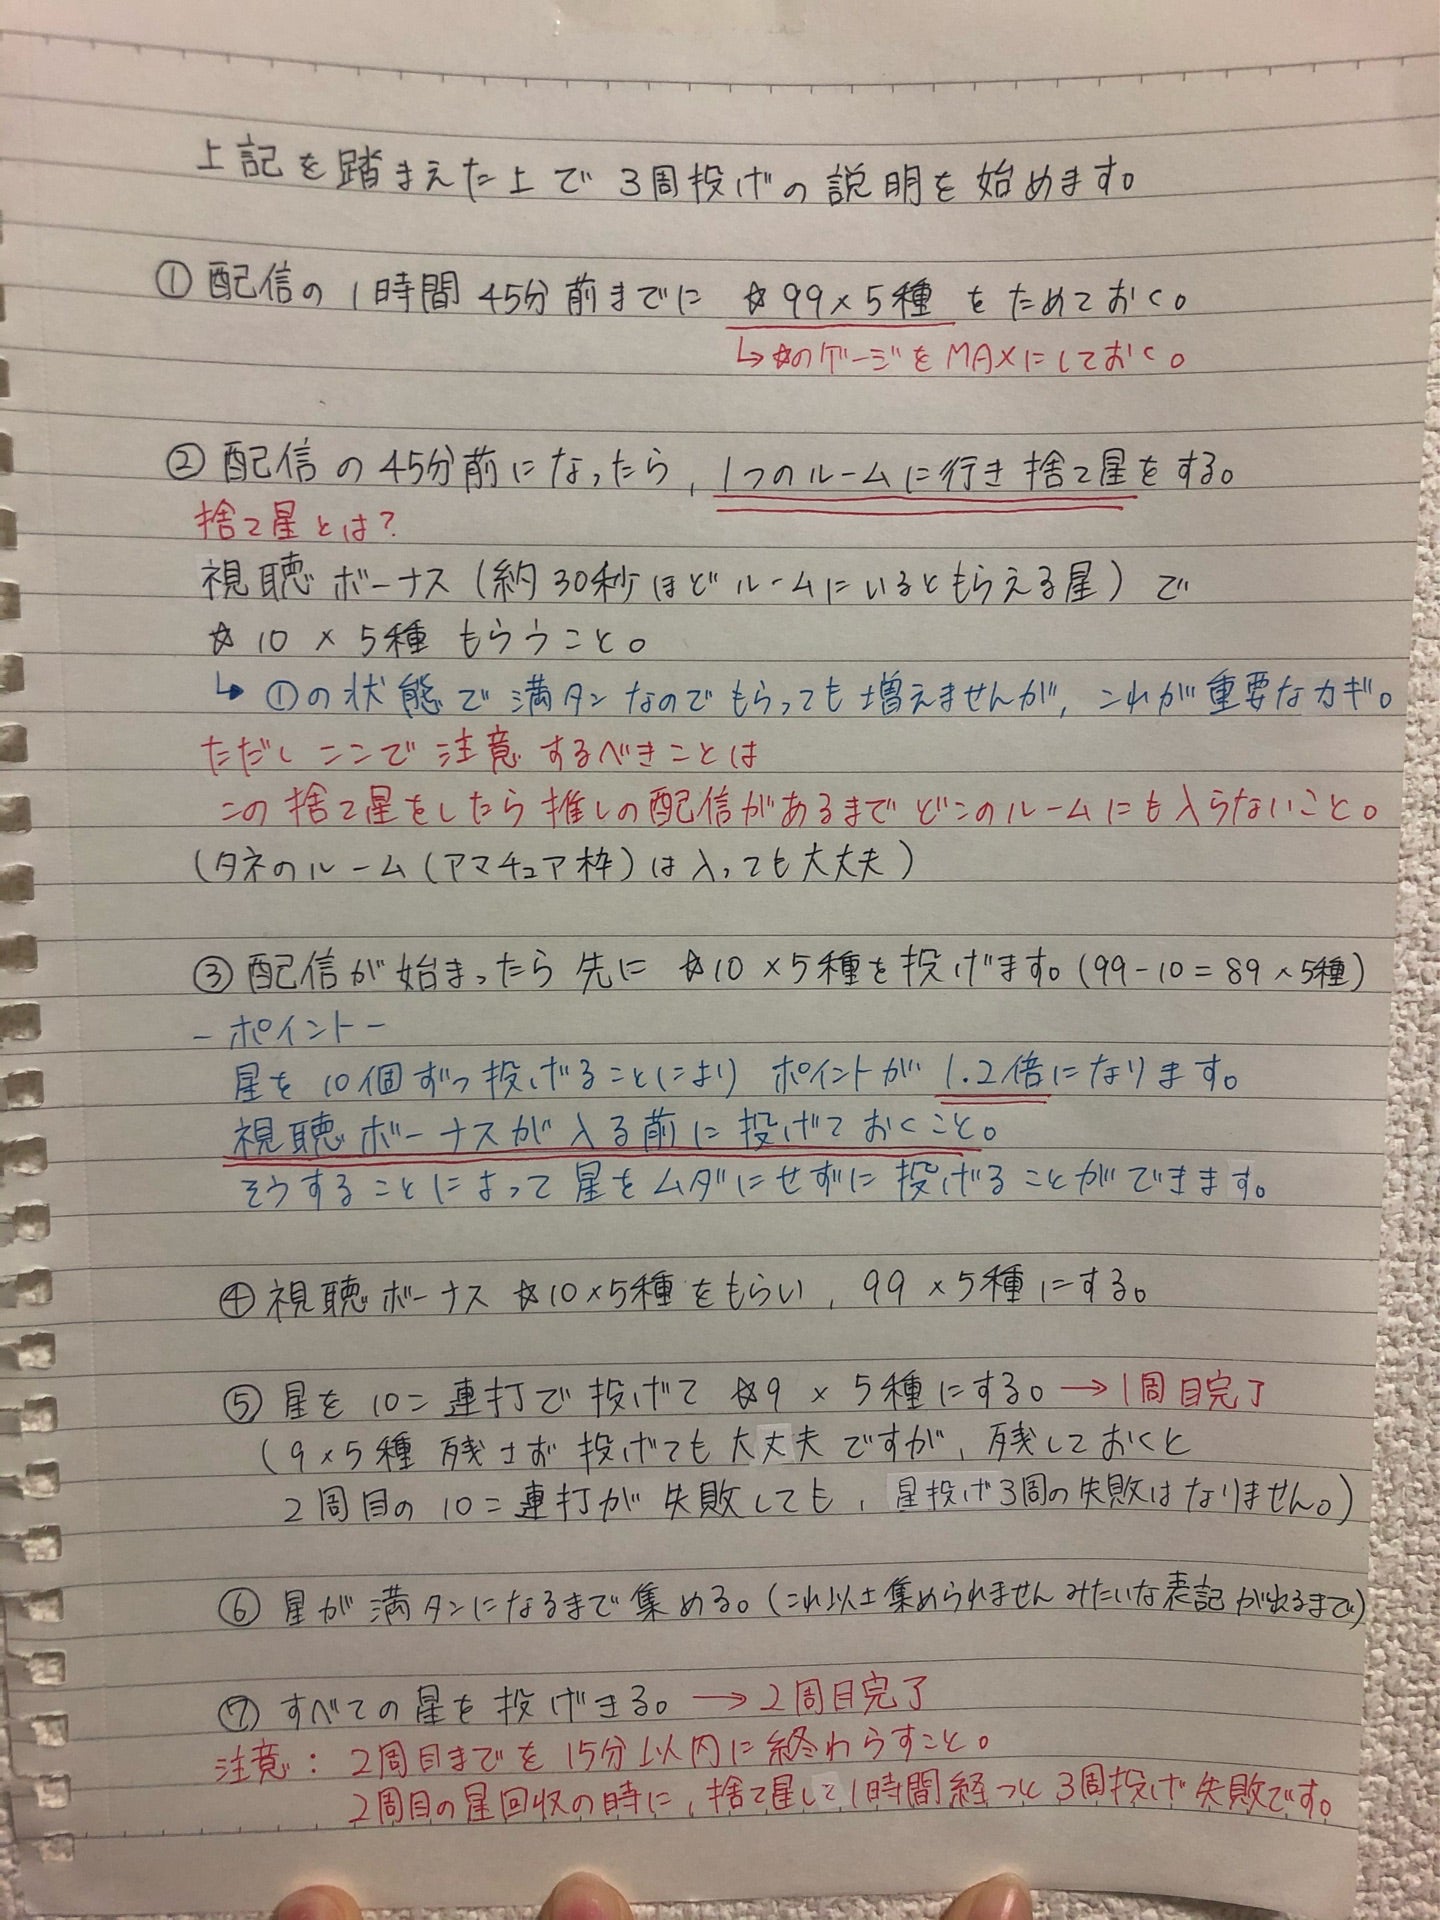 上記を踏まえた上で3周投げの説明を始めます。
①配信の1時間45分前までに ☆99×5種 をためておく。
↳☆のゲージをMAXにしておく。
②配信の45分前になったら、1つのルームに行き捨て星をする。
捨て星とは?
視聴ボーナス(約30秒ほどルームにいるともらえる星)で
☆10×5種もらうこと。
↳①の状態で満タンなのでもらっても増えませんが、これが重要なカギ。
ただしここで注意するべきことは
この捨て星をしたら推しの配信があるまでどこのルームにも入らないこと。
(タネのルーム(アマチュア枠)は入っても大丈夫)
③配信が始まったら先に☆10×5種を投げます。(99-10=89×5種)
-ポイント-
星を10個ずつ投げることによりポイントが1.2倍になります。
視聴ボーナスが入る前に投げておくこと。
そうすることによって星をムダにせずに投げることができます。
④視聴ボーナス☆10×5種をもらい、99×5種にする。
⑤星を10=連打で投げて☆9×5種にする。→1周目完了
(9×5種残さず投げても大丈夫ですが、残しておくと
2周目の10=連打が失敗しても、星投げ3周の失敗はなりません。)
⑥星が満タンになるまで集める。(これ以上集められませんみたいな表記が出るまで)
⑦すべての星を投げきる。→2周目完了
注意:2周目までを15分以内に終わらすこと。
2周目の星回収の時に、捨て星して1時間経つと3周投げ失敗です。